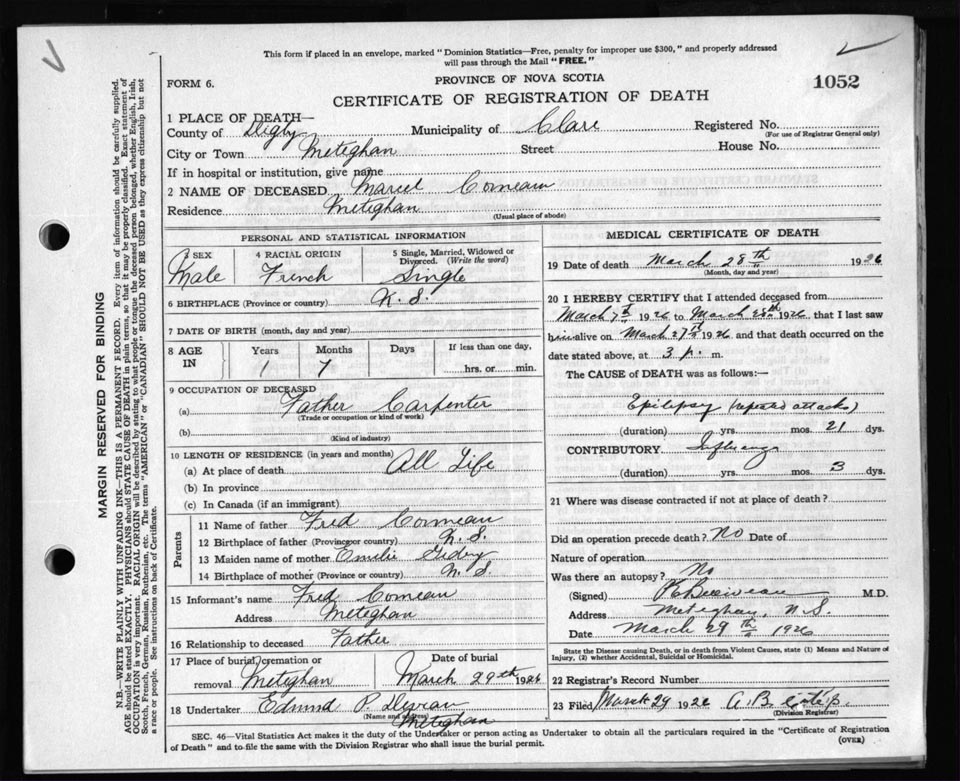 This form if placed in an envelope, marked "Dominion Statistics—Free, penalty for improper use $300," and properly addressed
will pass through the Mail "FREE."
FORM 6.
PROVINCE OF NOVA SCOTIA
1052
CERTIFICATE OF REGISTRATION OF DEATH
1 PLACE OF DEATH—
County of Digby Municipality of Clare Registered No.
(For use of Registrar General only)
City or Town Meteghan Street House No.
If in hospital or institution, give name
2 NAME OF DECEASED Marcel Comeau
Residence Meteghan
(Usual place of abode)
PERSONAL AND STATISTICAL INFORMATION
3 SEX 4 RACIAL ORIGIN 5 Single, Married, Widowed or Divorced. (Write the word)
Male French Single
6 BIRTHPLACE (Province or country) N. S.
7 DATE OF BIRTH (month, day and year)
8 AGE IN Years Months Days If less than one day,
1 7 hrs. or min.
9 OCCUPATION OF DECEASED
(a) Father Carpenter
(Trade or occupation or kind of work)
(b)
(Kind of industry)
10 LENGTH OF RESIDENCE (in years and months)
(a) At place of death All Life
(b) In province
(c) In Canada (if an immigrant)
Parents
11 Name of father Fred Comeau
12 Birthplace of father (Province or country) N. S.
13 Maiden name of mother Emelie
14 Birthplace of mother (Province or country) N. S.
15 Informant's name Fred Comeau
Address Meteghan
16 Relationship to deceased Father
17 Place of burial, cremation or removal Meteghan
Date of burial March 29th 1926
18 Undertaker Edmund P.
(Name and address) Meteghan
MEDICAL CERTIFICATE OF DEATH
19 Date of death March 28th 1926
(Month, day and year)
20 I HEREBY CERTIFY that I attended deceased from
March 7th 1926 to March 28th 1926 that I last saw
him alive on March 27th 1926 and that death occurred on the
date stated above, at 3 p. m.
The CAUSE of DEATH was as follows:—
Epilepsy (repeated attacks)
(duration) yrs. mos. 21 dys.
CONTRIBUTORY Influenza
(duration) yrs. mos. 3 dys.
21 Where was disease contracted if not at place of death?
Did an operation precede death? No Date of
Nature of operation
Was there an autopsy? No
(Signed) M.D.
Address Meteghan, N.S.
Date March 29th 1926
State the Disease causing Death, or in death from Violent Causes, state (1) Means and Nature of
Injury, (2) whether Accidental, Suicidal or Homicidal.
22 Registrar's Record Number
23 Filed March 29 1926 A. B.
(Division Registrar)
SEC. 46—Vital Statistics Act makes it the duty of the Undertaker or person acting as Undertaker to obtain all the particulars required in the "Certificate of Registration
of Death" and to file the same with the Division Registrar who shall issue the burial permit.
(OVER)
MARGIN RESERVED FOR BINDING
N.B.—WRITE PLAINLY WITH UNFADING INK—THIS IS A PERMANENT RECORD. Every item of information should be carefully supplied.
AGE should be stated EXACTLY. PHYSICIANS should STATE CAUSE OF DEATH in plain terms, so that it may be properly classified. Exact statement of
OCCUPATION is very important. RACIAL ORIGIN will be described by stating to what people or tongue the deceased person belonged, whether English, Irish,
Scotch, French, German, Russian, Ruthenian, etc. The terms "AMERICAN" or "CANADIAN" SHOULD NOT BE USED as they express citizenship but not
a race or people. See instructions on back of Certificate.